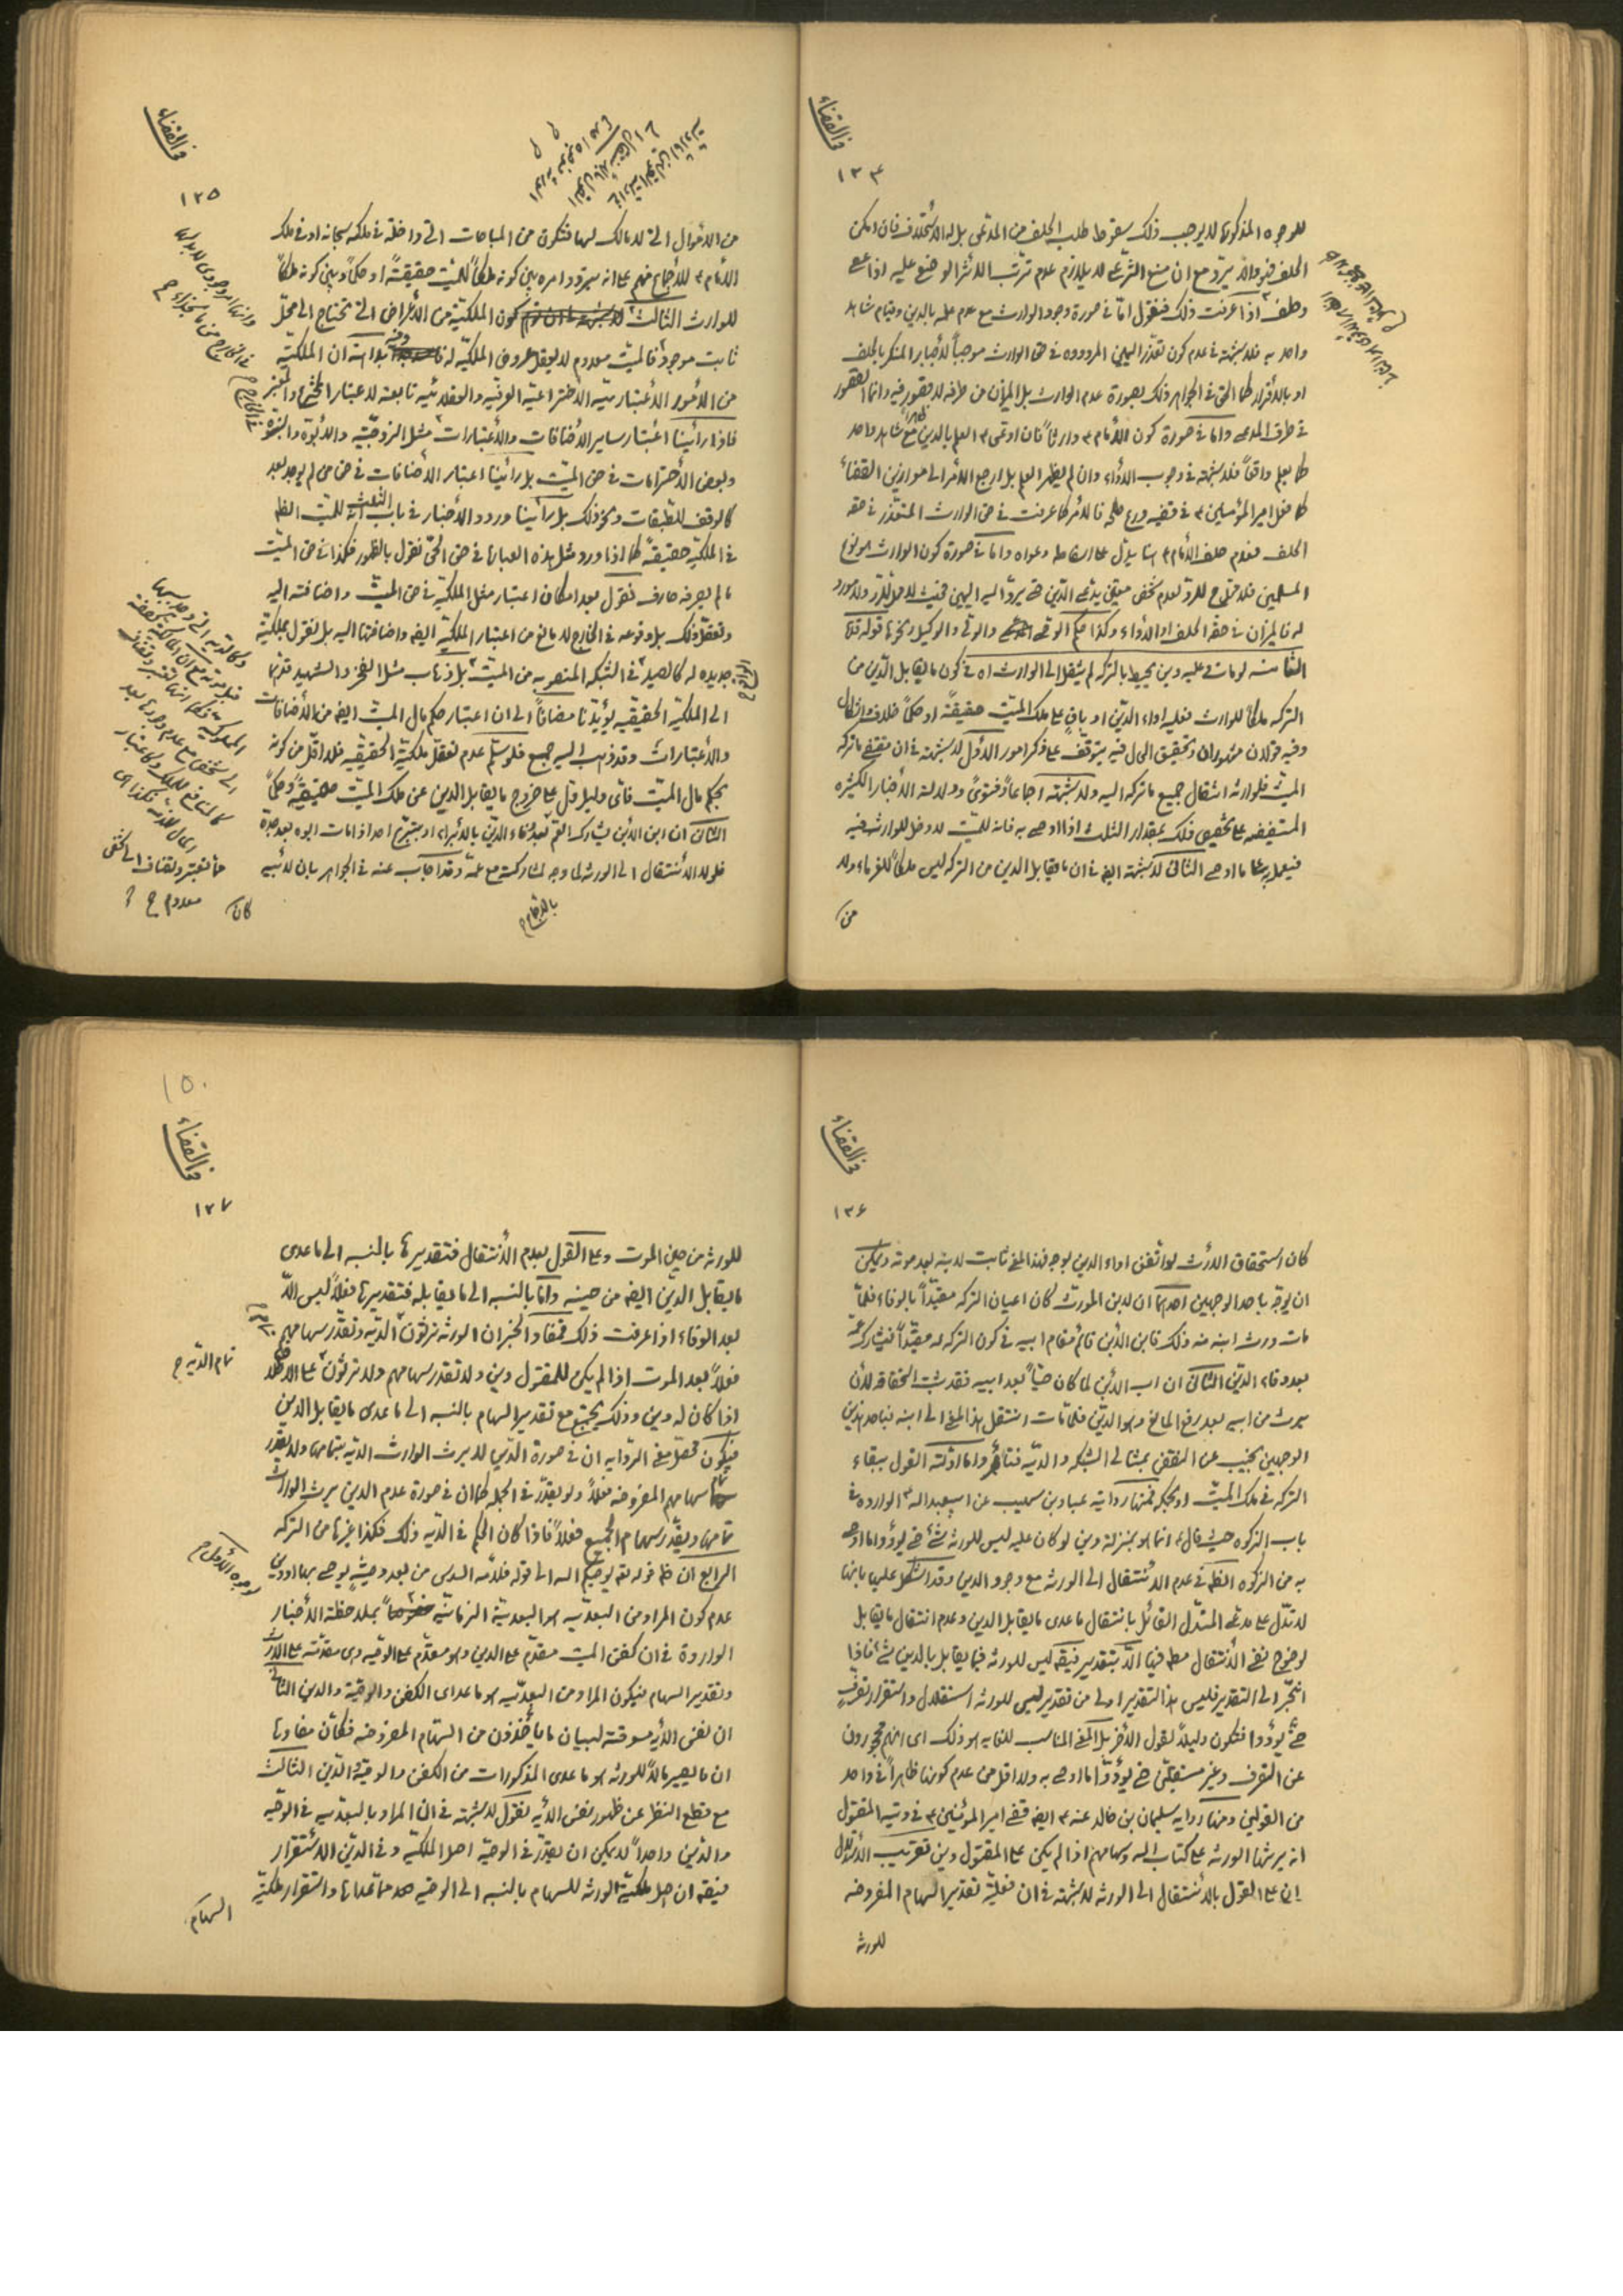 في القضاء
١٣٤
للوجوه المذكورة لا يوجب ذلك سقوط طلب الحلف من المدعى بل له الاستحلاف فان امكن
الحلف فهو والا يرد مع ان منع الشرعى لا يلازم عدم ترتب الاثر الوضعى عليه اذا عصى
وحلف اذا عرفت ذلك فنقول امّا في صورة وجود الوارث مع عدم علمه بالدين وقيام شاهد
واحد به فلا شبهة في عدم كون تعذر اليمين المردودة في حق الوارث موجباً لاجبار المنكر بالحلف
او بالاقرار كما احتمل في الجواهر وذلك بصورة عدم الوارث بل الميزان من طرفه لا قصور فيه وانما القصور
في طرف المدعى واما في صورة كون الامام ع وارثاً فان ادعى ع العلم بالدين مع شاهد واحد
كما يعلم واقعاً فلا شبهة في وجوب الاداء وان لم يظهر العلم بل ارجع الامر الى موازين القضاء
كما فعل امير المؤمنين ع في قضية درع طلحة فالامر كما عرفت في حق الوارث المتعذر في حقه
الحلف فعدم حلف الامام ع انما يدل على اسقاط دعواه واما في صورة كون الوارث هو نوع
المسلمين فلا يحتاج للرد لعدم شخص معين يدعى الدين حتى يرد اليه اليمين فحينئذ لا محل للرد ولا مورد
له فالميزان في حقه الحلف او الاداء وكذا حكم الوصى والولي والوكيل ونحوها قوله قده
الثامنة لو مات وعليه دين يحيط بالتركة لم ينتقل الى الوارث اه في كون ما يقابل الدين من
التركة ملكاً للوارث فعليه اداء الدين او باقٍ على ملك الميت حقيقةً او حكماً خلاف واشكال
وفيه قولان مشهوران وتحقيق الحال فيه يتوقف على ذكر امور الاول لا شبهة في ان مقتضى ما تركه
الميت فلوارثه انتقال جميع ما تركه اليه ولا شبهة اجماعاً وفتوىً ودلالة الاخبار الكثيرة
المستفيضة على تخصيص ذلك بمقدار الثلث اذا اوصى به فانه للميت لا دخل للوارث فيه
فيعمل بها ما اوصى الثاني لا شبهة ايضا في ان ما يقابل الدين من التركة ليس ملكاً للغرماء ولا
من
في القضاء
١٣٥
من الاموال التي لا مالك لها فتكون من المباحات التي داخلة في ملكه سبحانه او في ملك
الامام ع للاجماع منهم على انه يتردد امره بين كونه ملكاً للميت حقيقةً او حكماً وبين كونه ملكاً
للوارث الثالث كون الملكية من الاعراض التي تحتاج الى محل
ثابت موجود فالميت معدوم لا يعقل عروض الملكية له بداهة ان الملكية
من الامور الاعتبارية الاختراعية العرفية والعقلائية تابعة لاعتبار المخترع والمعتبر
فاذا رأينا اعتبار ساير الاضافات والاعتبارات مثل الزوجية والابوة والبنوة
وبعض الاحترامات في حق الميت بل رأينا اعتبار الاضافات في حق من لم يوجد بعد
كالوقف للطبقات ونحو ذلك بل رأينا ورود الاخبار في باب الثلث انه للميت الظاهر
في الملكية حقيقةً كما اذا ورد مثل هذه العبارة في حق الحي نقول بالظهور فكذا في حق الميت
ما لم يصرفه صارف فنقول بعد امكان اعتبار مثل الملكية في حق الميت واضافته اليه
وتعقل ذلك بل وقوعه في الخارج لا مانع من اعتبار الملكية ايضا واضافتها اليه بل نقول بملكية
جديدة له كالصيد في الشبكة المنصوبة من الميت بل ذهاب مثل الفخر والشهيد قدهما
الى الملكية الحقيقية يؤيدنا مضافاً الى ان اعتبار حكم مال الميت ايضا من الاضافات
والاعتبارات وقد ذهب اليه جمع فلو سلم عدم تعقل ملكية الحقيقية فلا اقل من كونه
بحكم مال الميت فاى دليل دل على خروج ما يقابل الدين عن ملك الميت حقيقةً وحكماً
الثاني ان ابن الابن يشارك العم بعد وفاء الدين بالابراء او بتبرع احد اذا مات ابوه بعد جده
فلولا الانتقال الى الورثة لما وجه لمشاركته مع عمه وقد اجاب عنه في الجواهر بان لابيه
كان
في القضاء
١٣٦
كان استحقاق الارث لو اتفق اداء الدين بوجه فهذا المعنى ثابت لابنه بعد موته ويمكن
ان يوجه باحد الوجهين احدهما ان لابن المورث كان اعيان التركة مقيداً بالوفاء فلما
مات ورث ابنه منه ذلك فابن الابن قائم مقام ابيه في كون التركة له مقيداً فيشارك عمه
بعد وفاء الدين الثاني ان اب الابن لما كان حياً بعد ابيه فقد ثبت استحقاقه لان
يرث من ابيه بعد رفع المانع وهو الدين فلما مات انتقل هذا المعنى الى ابنه فباحد هذين
الوجهين نجيب عن النقض بمثالى الشبكة والدية فتأمل واما ادلة القول ببقاء
التركة في ملك الميت او بحكمه فمنها رواية عباد بن صهيب عن ابيعبد الله ع الواردة في
باب الزكوة حيث قال ع انما هو بمنزلة دين لو كان عليه ليس للورثة شئ حتى يؤدوا ما اوصى
به من الزكوة الظاهر في عدم الانتقال الى الورثة مع وجود الدين وقد اشكل عليها بانها
لا تدل على مدعى المستدل القائل بانتقال ما عدى ما يقابل الدين وعدم انتقال ما يقابل
لوضوح نفى الانتقال مطلقا فيها الا بتقدير فيقه ليس للورثة فيما يقابل بالدين شئ فاذا
انجر الى التقدير فليس هذا التقدير اولى من تقدير ليس للورثة استقلال واستقرار تصرف
حتى يؤدوا فتكون دليلاً لقول الآخر بل المعنى المناسب للغاية هو ذلك اى انهم محجورون
عن التصرف وغير مستقلين حتى يؤدوا ما اوصى به ولا اقل من عدم كونها ظاهراً في واحد
من القولين ومنها رواية سليمان بن خالد عنه ع ايضا قضى امير المؤمنين ع في دية المقتول
انه يرثها الورثة على كتاب الله وسهامهم اذا لم يكن على المقتول دين تقريب الاستدلال
ان على القول بالانتقال الى الورثة لا شبهة في ان فعلية تقدير السهام المفروضة
للورثة
١٥٠
في القضاء
١٣٧
للورثة من حين الموت وعلى القول بعدم الانتقال فتقديرها بالنسبة الى ما عدى
ما يقابل الدين ايضا من حينه وامّا بالنسبة الى ما يقابله فتقديرها فعلاً ليس الا
بعد الوفاء اذا عرفت ذلك فمفاد الخبر ان الورثة يرثون الدية وتقدر سهامهم
فعلاً بعد الموت اذا لم يكن للمقتول دين ولا تقدر سهامهم ولا يرثون على الاطلاق
تمام الدية
اذا كان له دين وذلك يجتمع مع تقدير السهام بالنسبة الى ما عدى ما يقابل الدين
فيكون محصل معنى الرواية ان في صورة الدين لا يرث الوارث الدية بتمامها ولا يقدر
سهامهم المفروضة فعلاً ولو يقدر في الجملة كما ان في صورة عدم الدين يرث الوارث
تمامها ويقدر سهام الجميع فعلاً فاذا كان الحكم في الدية ذلك فكذا غيرها من التركة
الرابع ان ظاهر قوله تعالى يوصيكم الله الى قوله فلامه السدس من بعد وصية يوصى بها او دين
عدم كون المراد من البعدية هو البعدية الزمانية بملاحظة الاخبار
الواردة في ان كفن الميت مقدم على الدين وهو مقدم على الوصية وهى مقدمة على الارث
وتقدير السهام فيكون المراد من البعدية هو ما عداى الكفن والوصية والدين الثاني
ان نفس الآية مسوقة لبيان ما يأخذون من السهام المفروضة فكأن مفادها
ان ما يصير مالاً للورثة هو ما عدى المذكورات من الكفن والوصية والدين الثالث
مع قطع النظر عن ظهور نفس الآية نقول لا شبهة في ان المراد بالبعدية في الوصية
والدين واحداً لا يمكن ان يقدر في الوصية اصل الملكية وفي الدين الاستقرار
فيقه ان اصل ملكية الورثة للسهام بالنسبة الى الوصية بعدها واستقرار ملكية
السهام